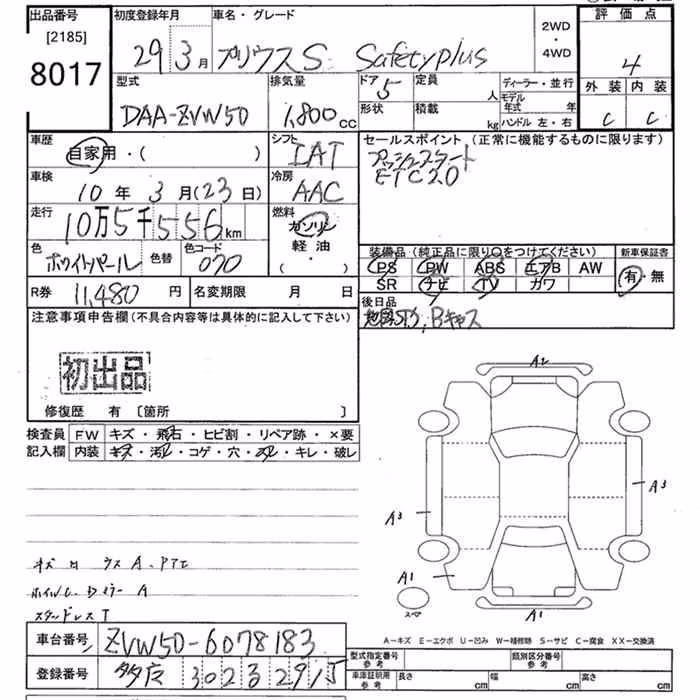 出品番号
[2185]
8017
初度登録年月
29 3月
車名・グレード
プリウスS Safetyplus
2WD
・
4WD
評価点
4
外装 内装
C C
型式
DAA-ZVW50
排気量
1,800cc
ドア 5
形状
定員 人
積載 kg
ディーラー・並行
モデル年式 年
ハンドル 左・右
車歴
自家用・( )
シフト
IAT
車検
10年3月(23日)
冷房
AAC
走行
10万5千556km
燃料
ガソリン
軽油
( ・ )
色
ホワイトパール
色替
色コード
070
R券 11,480円
名変期限 月 日
セールスポイント (正常に機能するものに限ります)
プッシュスタート
ETC2.0
装備品(純正品に限り○をつけてください)
PS PW ABS エアB AW
SR ナビ TV カワ
新車保証書
有・無
後日品
Bキャス
注意事項申告欄(不具合内容等は具体的に記入して下さい)
初出品
修復歴 有 [箇所 ]
検査員 FW キズ・飛石・ヒビ割・リペア跡・×要
記入欄 内装 キズ・汚レ・コゲ・穴・スレ・キレ・破レ
A2
A3
A3
A1
A1
スペア
スタッドレス T
A-キズ E-エクボ U-凹み W-補修跡 S-サビ C-腐食 XX-交換済
車台番号 ZVW50-6078183
登録番号 多摩 302 す 2915
型式指定番号
参考
類別区分番号
参考
車庫証明用
参考
長さ cm 幅 cm 高さ cm